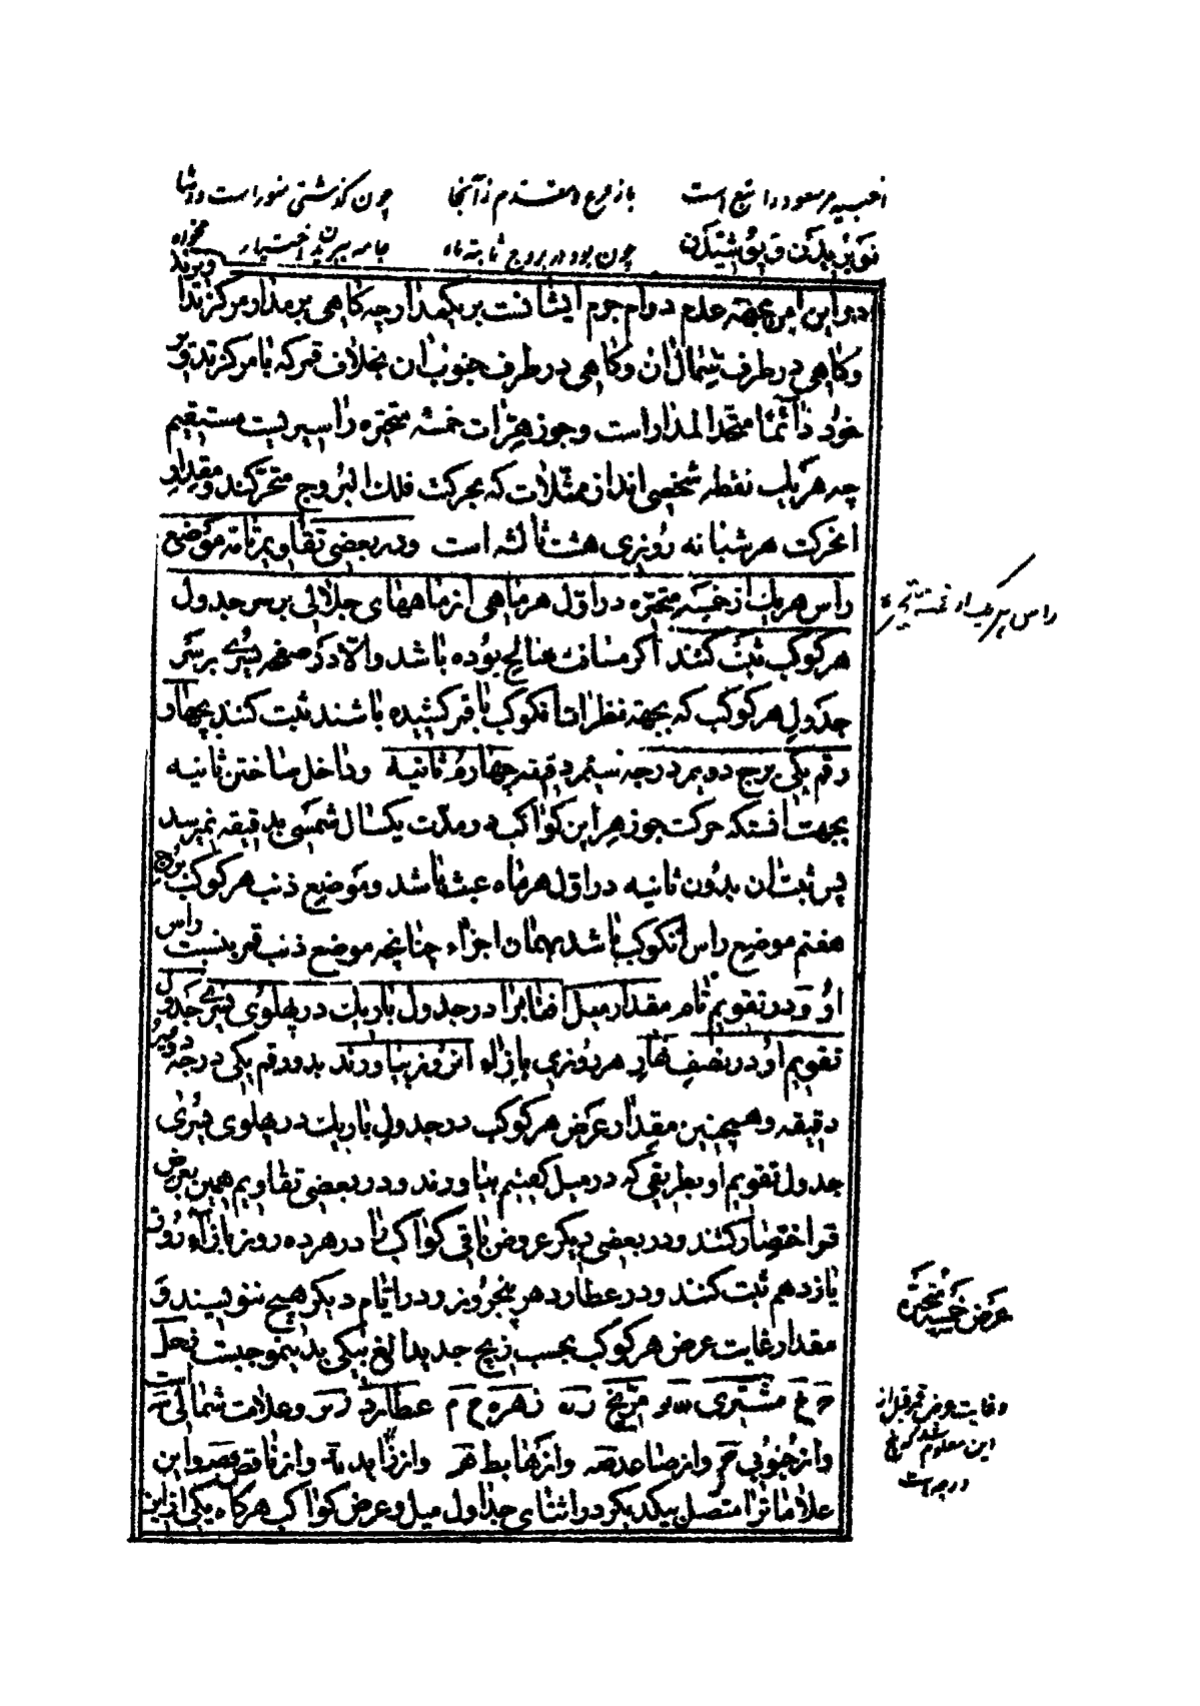 باز فرع و مقدم ز آنجا
چون گذشتی
نو بریدن و پوشیدن
چون بود در بروج ثابته ماه
جامه
این امر بجهة عدم دوام جرم ایشانست بر یکمدار چه کاهی بر مدار مرکز تدا
ویرند
وکاهی در طرف شمال ان وکاهی در طرف جنوب ان بخلاف قمر که با مرکز تدویر
خود دائما متحد المدار است وجوزهرات خمسه متحیره را سیریست مستقیم
چه هر یک نقطه شخصی اند از ممثلات که بحرکت فلک البروج متحرکند ومقدار
انحرکت هر شبانه روزی هشت ثالثه است ودر بعضی تقاویم تامه موضع
راس هر یک از خمسه متحیره در اول هر ماهی از ماههای جلالی بر سر جدول
راس هر یک از خمسه متحیره
هر کوکب ثبت کنند اکر مسافت صالح بوده باشد والا در صفحه یسری بر سر
جدول هر کوکب که بجهة نظرات انکوکب با قمر کشیده باشند ثبت کنند بچهار
رقم یکی برج دویم درجه سیم دقیقه چهارم ثانیه وداخل ساختن ثانیه
بجهت انستکه حرکت جوزهر این کواکب در مدت یکسال شمسی بدقیقه نمیرسد
پس ثبت ان بدون ثانیه در اول هر ماه عبث باشد وموضع ذنب هر کوکب برج
هفتم موضع راس انکوکب باشد بهمان اجزاء چنانچه موضع ذنب قمر بنسبت راس
او ودر تقویم تام مقدار میل انها را در جدول باریک در پهلوی یسری جدول
تقویم او در نصف نهار هر روزی بازاء انروز بیاورند بدو رقم یکی درجه دویم
دقیقه وهمچنین مقدار عرض هر کوکب در جدول باریک در پهلوی یسری
جدول تقویم او بطریقی که در میل کفتیم بیاورند ودر بعضی تقاویم همین بعرض
قمر اختصار کنند ودر بعضی دیکر عروض باقی کواکب را در هر ده روز بازاء روز
یازدهم ثبت کنند ودر عطارد هر پنجروز ودر ایام دیکر هیچ ننویسند و
عرض خمسه متحیره
مقدار غایت عرض هر کوکب بحسب زیج جدید الغ بیکی بدینموجبست زحل
مشتری مریخ زهره عطارد وعلامت شمالی
وغایت عرض قمر قبل از
این معلوم شد که
درجه است
واز جنوبی واز صاعد واز هابط واز زاید واز ناقص واین
علامات را متصل بیکدیکر در اثنای جداول میل وعرض کواکب هر کاه یکی از این